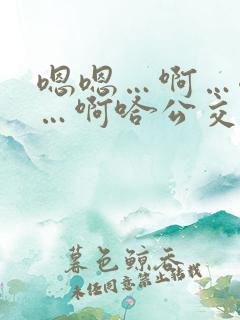 嗯嗯…啊…
…啊嗒公交
暮色鲸吞
未经同意禁止转载